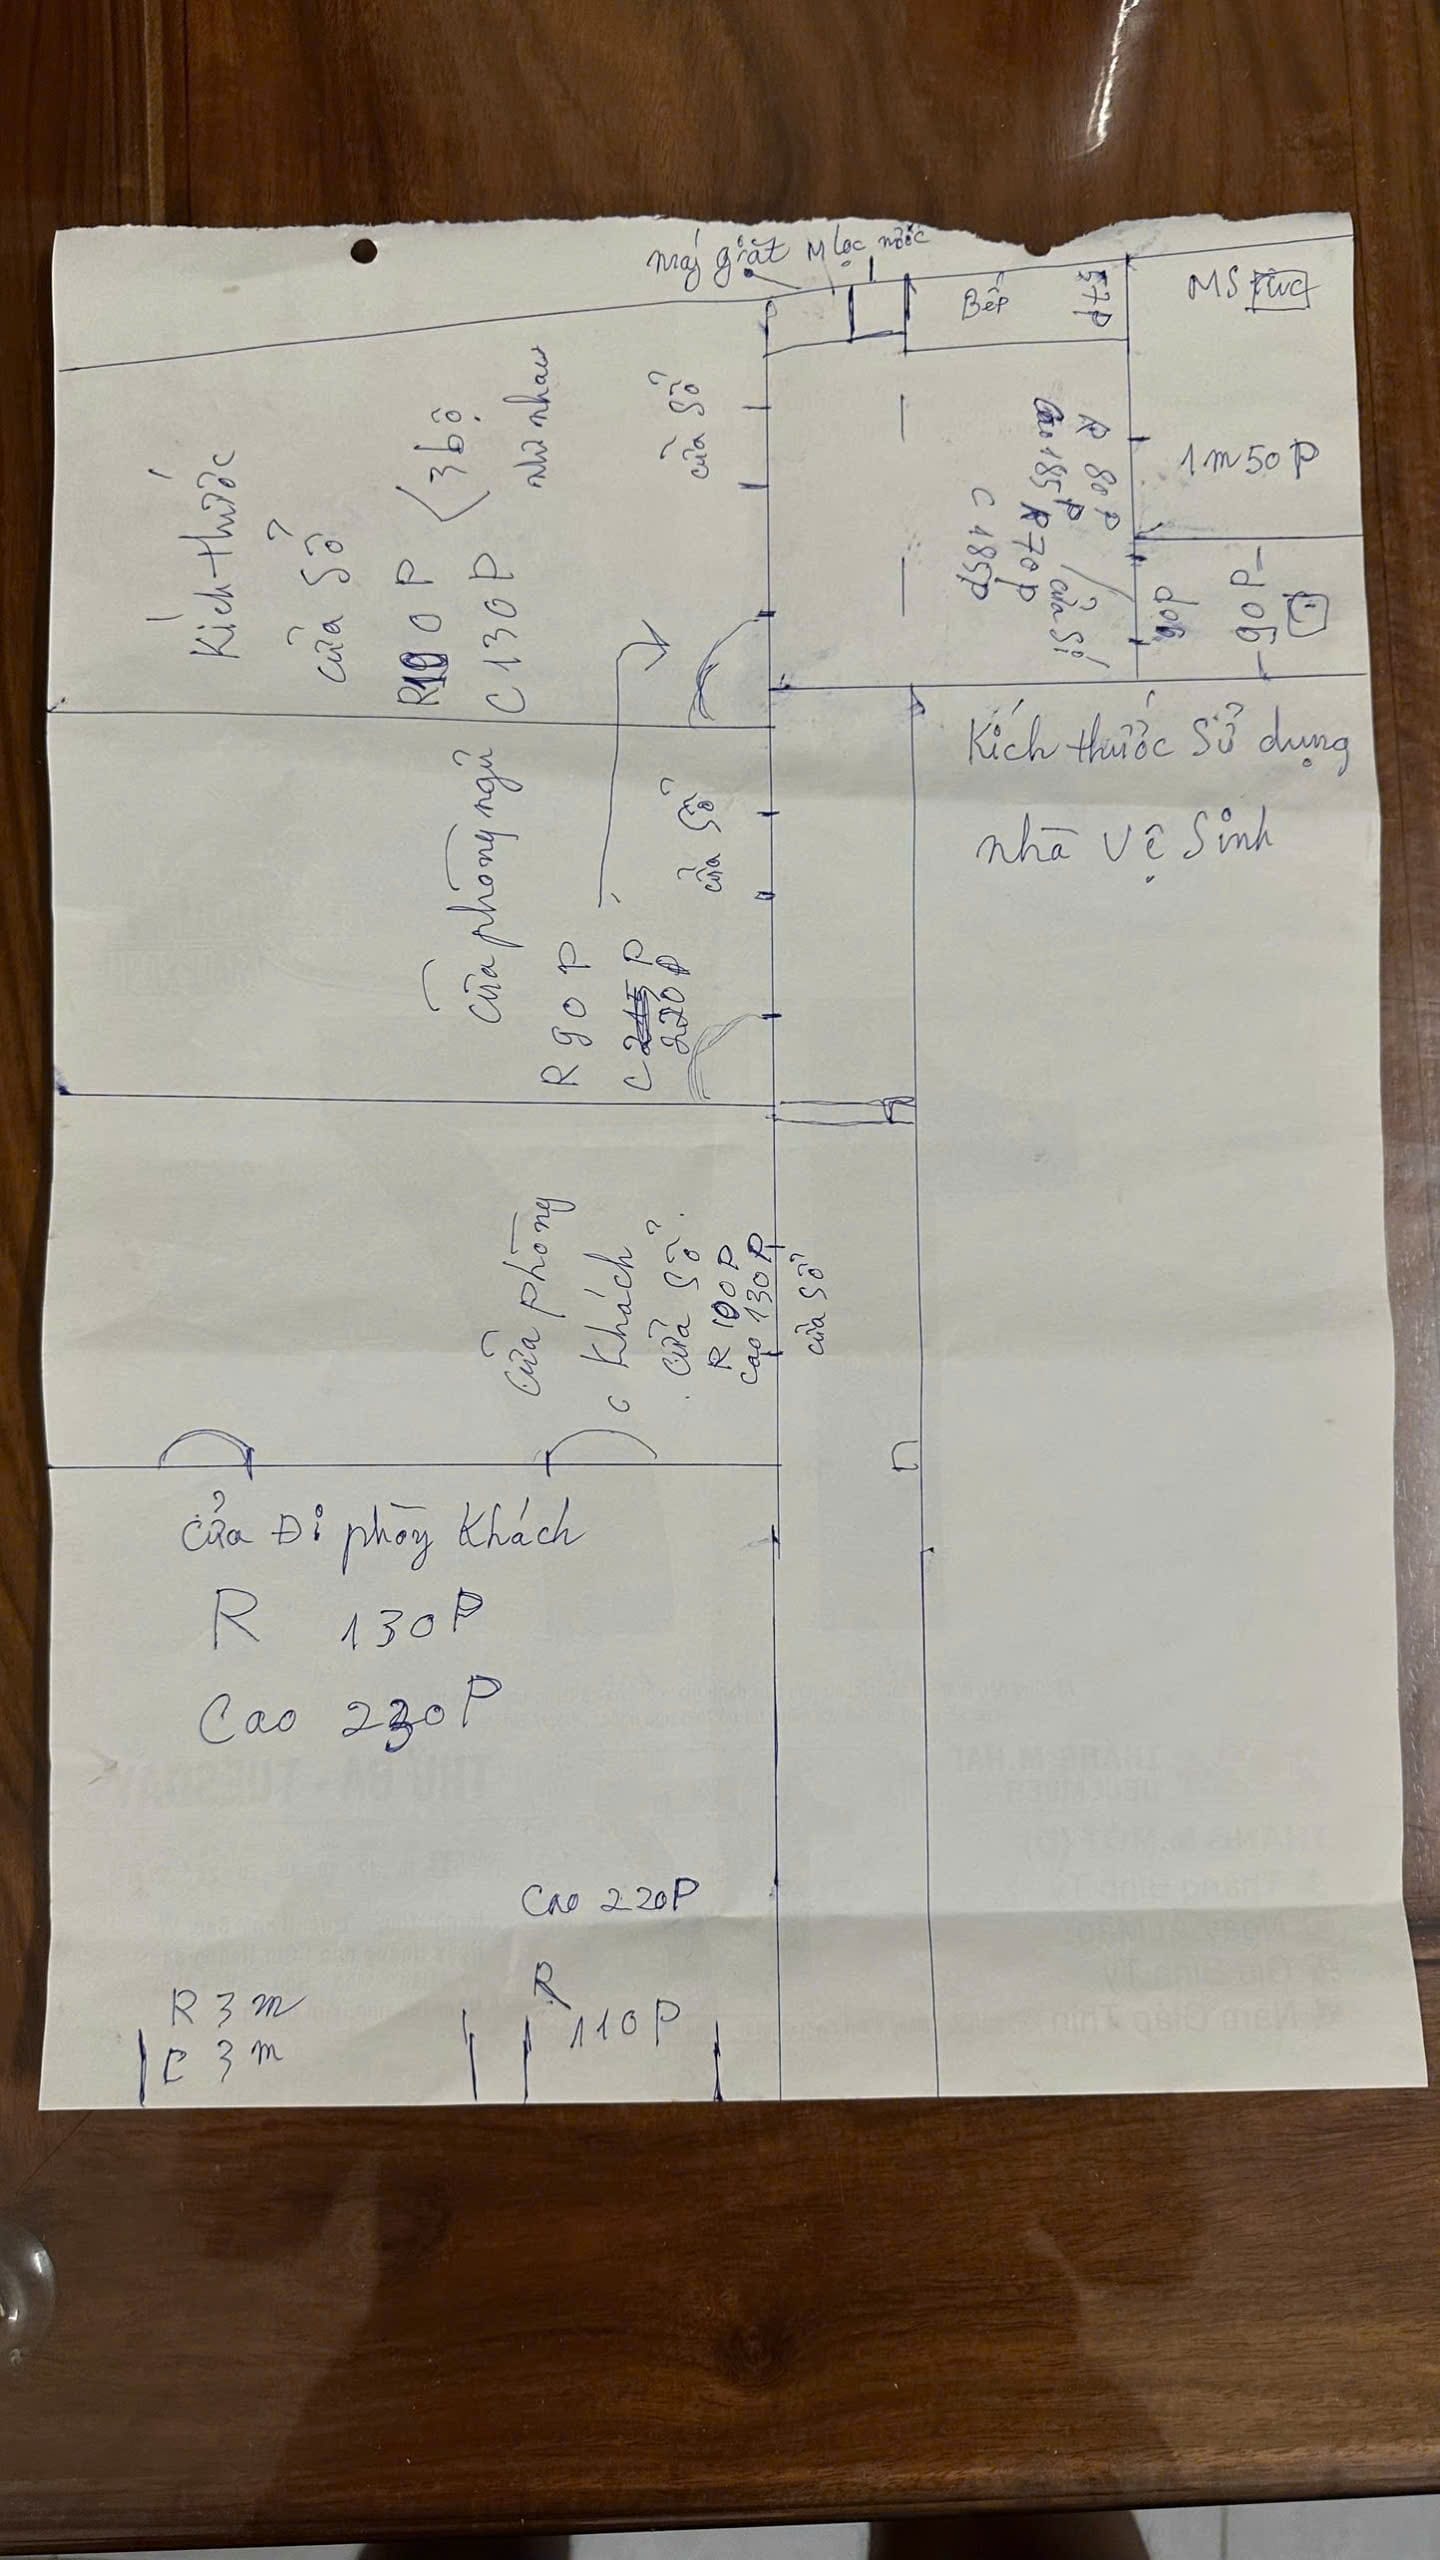 máy giặt M lọc nước
Bếp
57P
MS WC
1m50P
R 80P
Cao 185P
R 70P
C 185P
cửa sổ
90P
90P
Kích thước
cửa sổ
3 bộ
như nhau
C 130P
cửa sổ
Kích thước sử dụng
nhà vệ sinh
Cửa phòng ngủ
R 90P
220P
cửa sổ
Cửa phòng
Khách
Cửa sổ
R 100P
cao 130P
cửa sổ
Cửa Đi phòng Khách
R 130P
Cao 220P
Cao 220P
R
110P
R 3m
C 3m